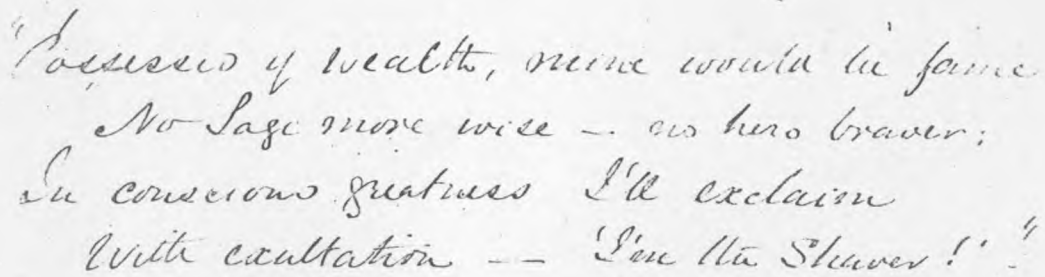 "Possessed of wealth, mine would be fame
No Sage more wise — no hero braver;
In conscious greatness I'll exclaim
With exultation — — 'I'm the Shaver!'"